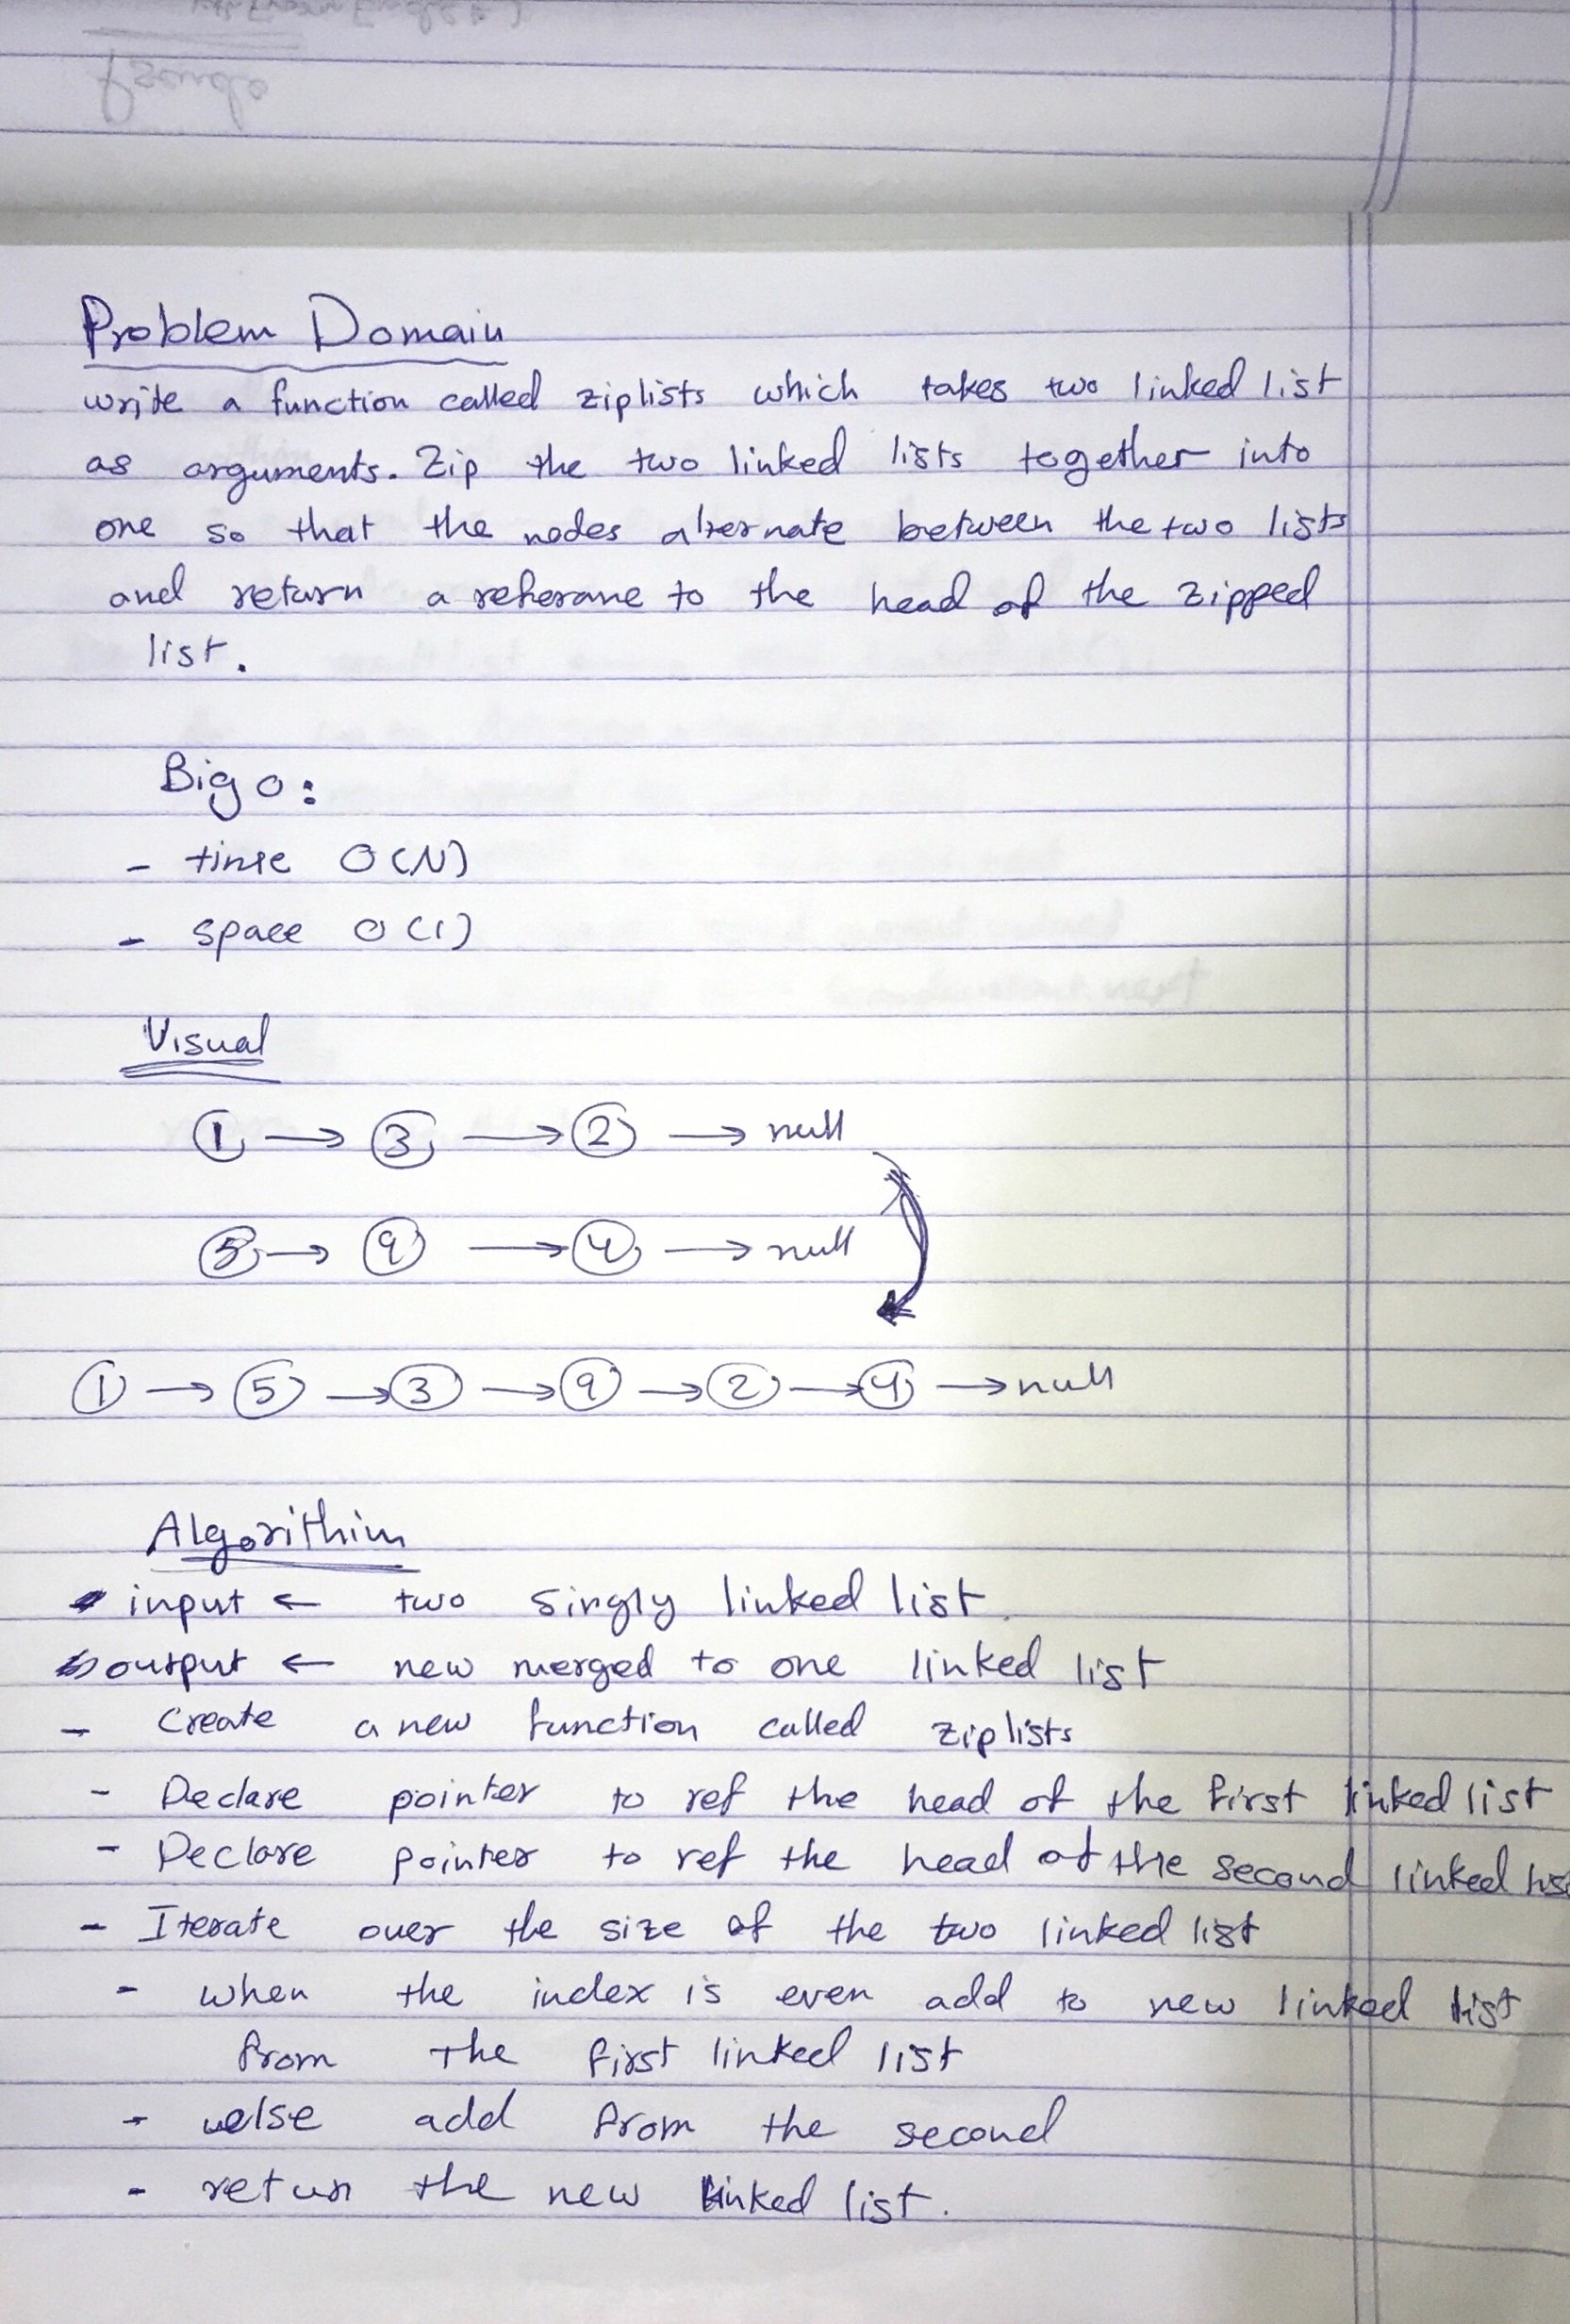 Pseudo
Problem Domain
write a function called ziplists which takes two linked list
as arguments. Zip the two linked lists together into
one so that the nodes alternate between the two lists
and return a referane to the head of the zipped
list.
Big o:
- time O(N)
- space O(1)
Visual
1 → 3 → 2 → null
5 → 9 → 4 → null
1 → 5 → 3 → 9 → 2 → 4 → null
Algorithim
input ← two singly linked list
output ← new merged to one linked list
- Create a new function called ziplists
- Declare pointer to ref the head of the first linked list
- Declare pointer to ref the head of the second linked lis
- Iterate over the size of the two linked list
- when the index is even add to new linked list
from the first linked list
- else add from the second
- return the new linked list.